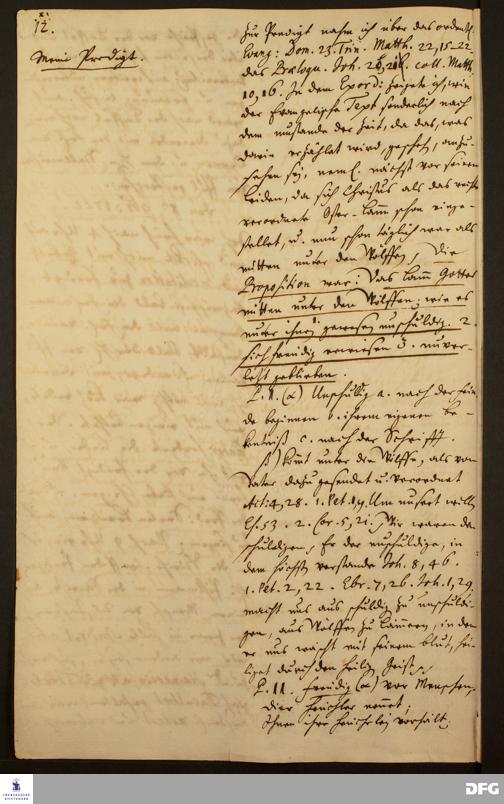 12.
Meine Predigt.
Zur Predigt nahm ich über das ordentl.
Evang: Dom. 23. Trin. Matth. 22, 15_22
das Proloqu. Joh. 2 coll. Matth.
10, 16. In dem Exord: zeigete ich, wie
der Evangelische Text sonderlich nach
dem umstande der Zeit, da das, was
darin erzählet wird, geschehen, anzu-
sehen sey, neml. nächst vor seinem
Leiden, da sich Christus als das
verordnete Oster-Lamm schon einge-
stellet, u. nun schon täglich war als
mitten unter den Wölffen, Die
Proposition war: Das Lamm Gottes
mitten unter den Wölffen; wie es
unter ihnen gewesen unschuldig. 2.
sich freudig erwiesen u. unver-
letzt geblieben.
P. I. (α) Unschuldig a. nach der Fein-
de beginnen b. ihrem eigenen be-
kentniß c. nach der Schrifft.
β) komt unter die Wölffe, als vom
Vater dazu gesendet u. verordnet
Act. 4, 28. 1. Pet. 1, Um unsert willen
Es. 53. 2. Cor. 5, 21. Wir waren die
schuldigen, Er der unschuldige, in
dem höchsten verstande Joh. 8, 46.
1. Pet. 2, 22. Ebr. 7, 26. Joh. 1, 29
macht uns aus schuldig zu unschuldi-
gen, aus Wölffen zu Lämmern, in dem
er uns wäscht mit seinem blut, hei-
liget durch den heilig. Geist.
P. II. freudig (α) vor Menschen,
die Heuchler nennet,
Ihnen ihre Heucheley vorhält;
FRANCKESCHE
STIFTUNGEN
DFG